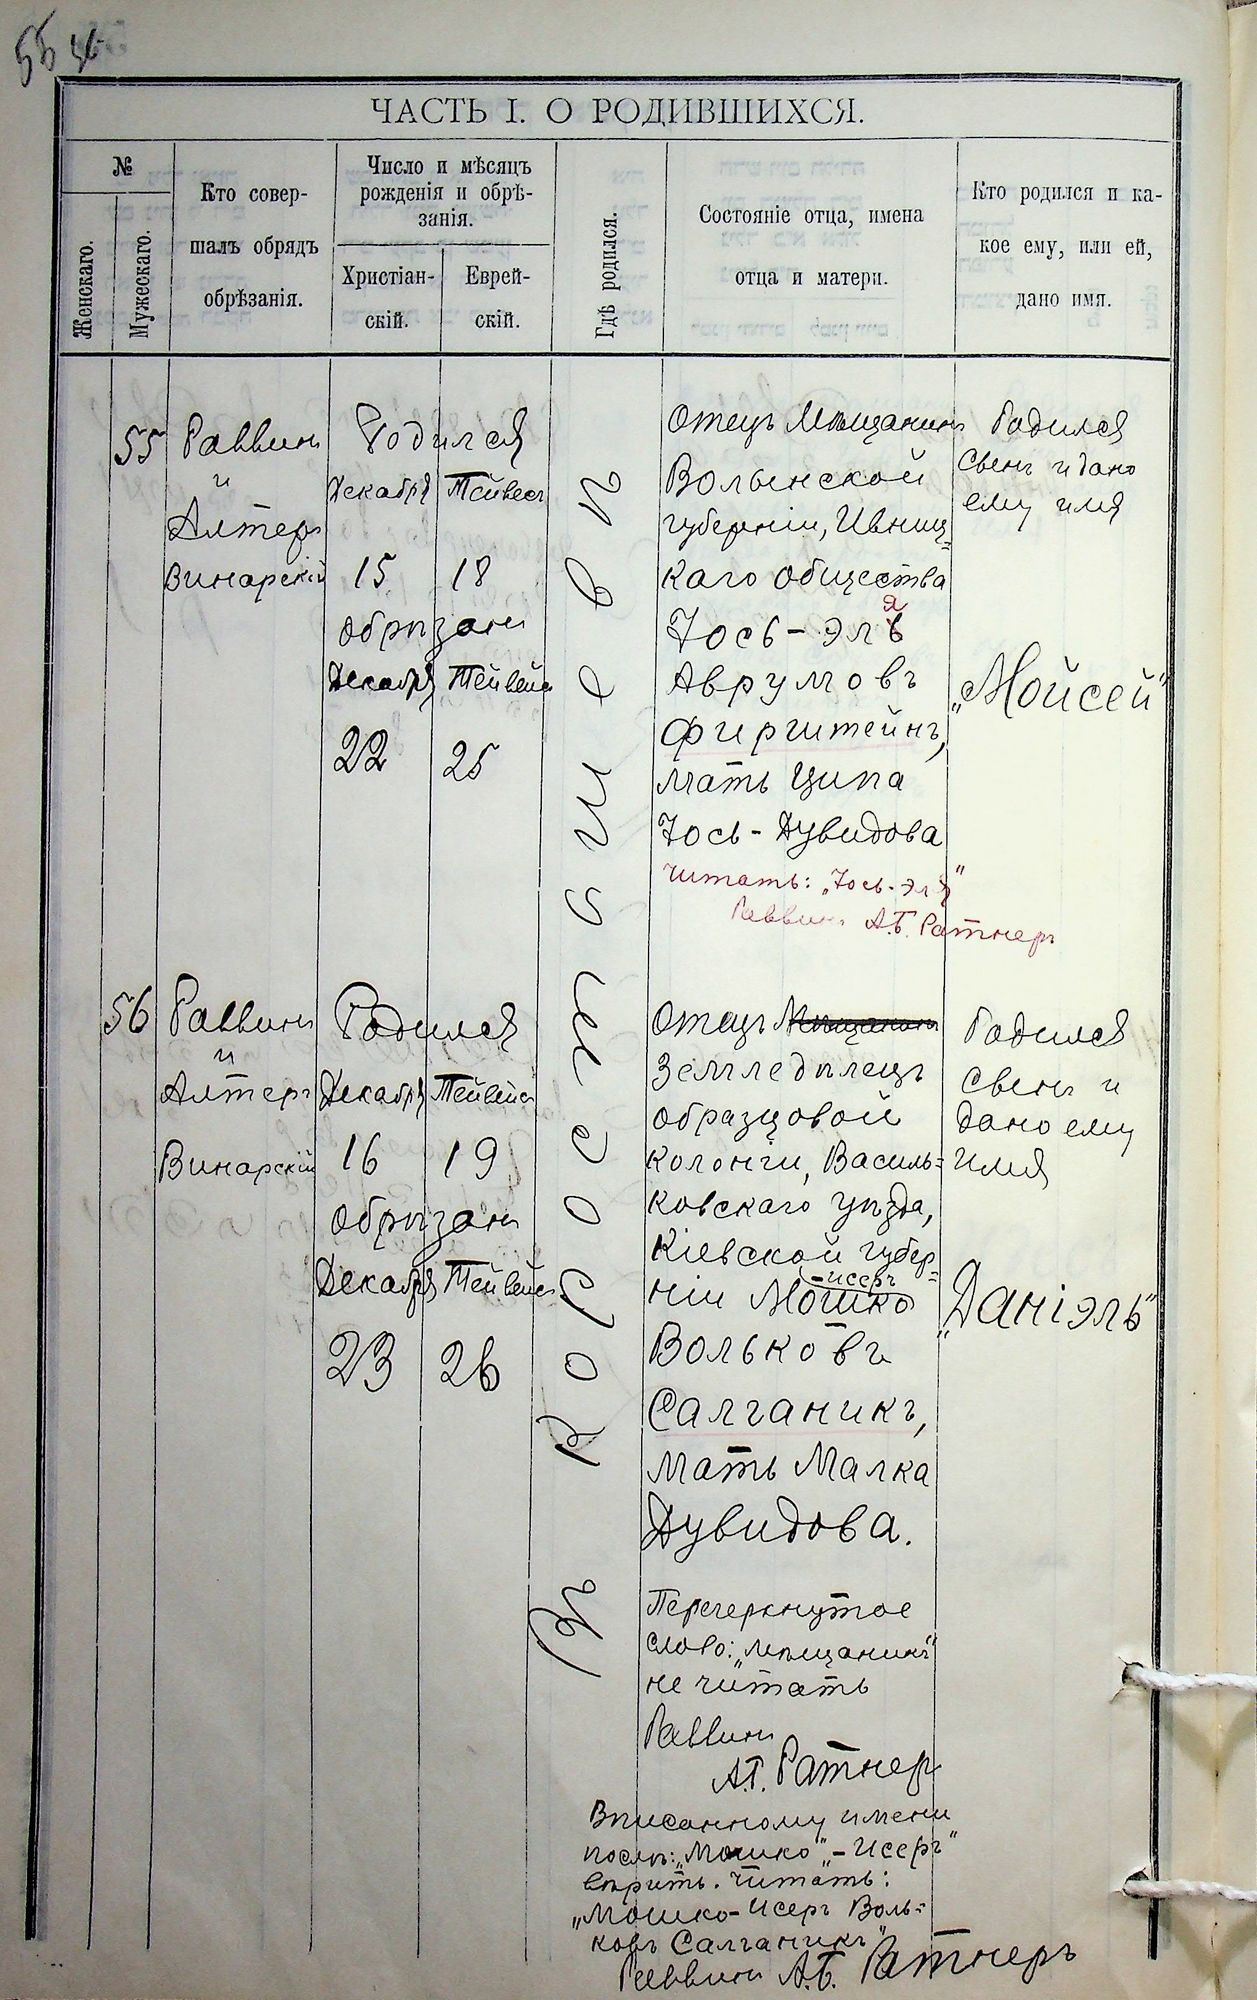 55 56
ЧАСТЬ I. О РОДИВШИХСЯ.
№
Женскаго.
Мужескаго.
Кто совер-
шалъ обрядъ
обрѣзанія.
Число и мѣсяцъ
рожденія и обрѣ-
занія.
Христіан-
скій.
Еврей-
скій.
Гдѣ родился.
Состояніе отца, имена
отца и матери.
Кто родился и ка-
кое ему, или ей,
дано имя.
55
Раввинъ
и
Алтеръ
Винарскій
Родился
Декабря Тейвеса
15 18
обрѣзанъ
Декабря Тейвеса
22 25
Въ Коростишевѣ
Отецъ Мѣщанинъ
Волынской
губерніи, Ивниц=
каго общества
Іось-Эль
я
Аврумовъ
Фирштейнъ,
мать Ципа
Іось-Дувидова
Читать: „Іось-Эля"
Раввинъ А.Б. Ратнеръ
Родился
сынъ и дано
ему имя
„Мойсей"
56
Раввинъ
и
Алтеръ
Винарскій
Родился
Декабря Тейвеса
16 19
обрѣзанъ
Декабря Тейвеса
23 26
Отецъ Мѣщанинъ
Земледѣлецъ
образцовой
колоніи, Василь=
ковскаго уѣзда,
Кіевской губер=
-Исеръ
ніи Мошко
Вольковъ
Салганикъ,
мать Малка
Дувидова.
Перечеркнутое
слово: „мѣщанинъ"
не читать
Раввинъ
А.Б. Ратнеръ
Вписанному имени
послѣ: „Мошко" „-Исеръ"
вѣрить. Читать:
„Мошко-Исеръ Воль=
ковъ Салганикъ"
Раввинъ А.Б. Ратнеръ
Родился
сынъ и
дано ему
имя
„Даніэль"